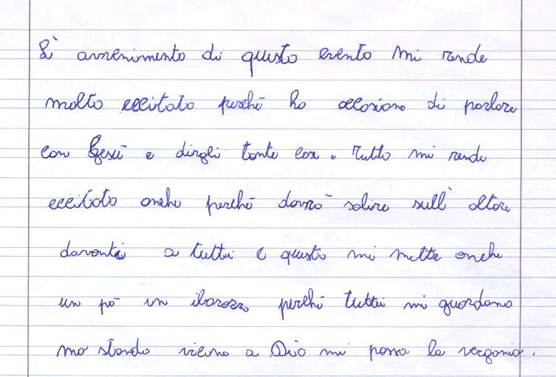 L' avvenimento di questo evento mi rende
molto eccitato perchè ho occasione di parlare
con Gesù e dirgli tante cose. Tutto mi rende
eccitato anche perchè dovrò salire sull' altare
davanti a tutti e questo mi mette anche
un pò in ibarazzo perchè tutti mi guardano
ma stando vicino a Dio mi passa la vergonia.